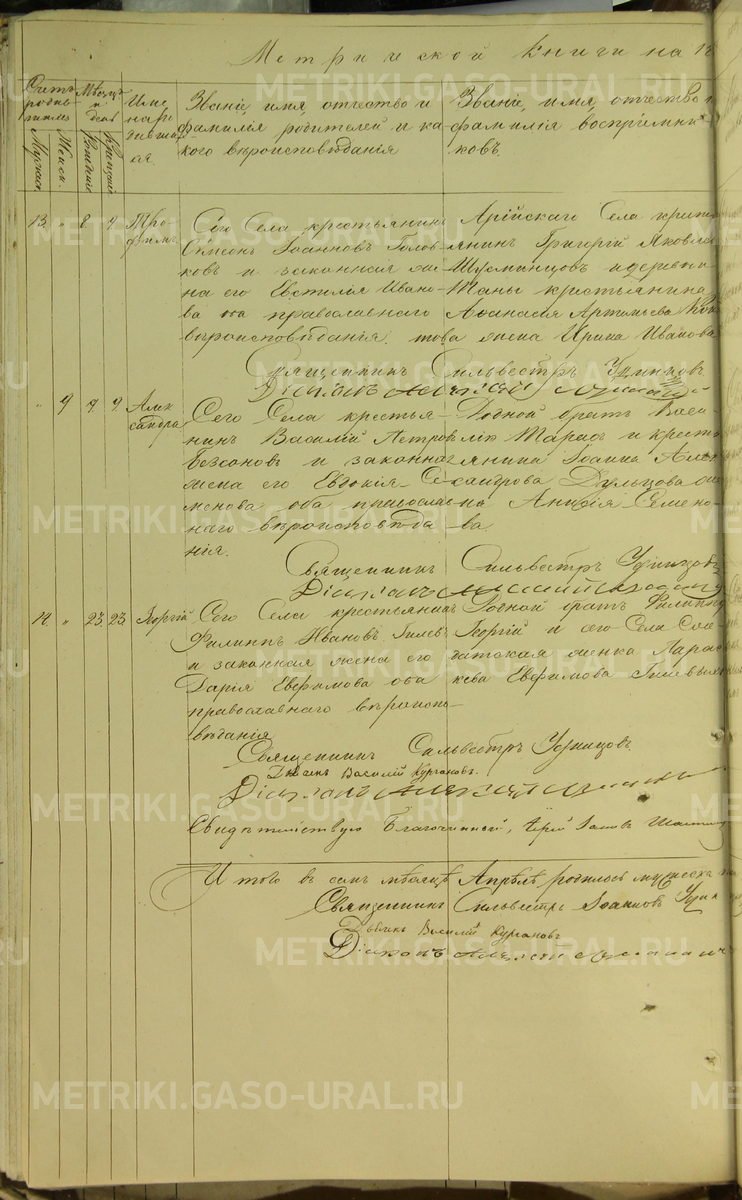 Метрической книги на 18
Счетъ родившихся
Мужска.
Женск.
Мѣсяцъ и день
Рожденія
Крещенія
Имена родившихся
Званіе, имя, отчество и
фамилія родителей и ка
кого вѣроисповѣданія
Званіе, имя, отчество и
фамилія воспріемни
ковъ.
13. " 8 9 Тро-
фимъ
Сего Села крестьянинъ
Симеонъ Іоанновъ Голов
ковъ и законная же
на его Евстилія Ивано
ва оба православнаго
вѣроисповѣданія.
Арійскаго Села крест
янинъ Григорій Яковлев
и деревни
Таны крестьянина
Аѳанасія Артемьева
това жена Ирина Иванова
Священникъ Сильвестръ Удинцовъ
Діаконъ
" 9 7 9 Алек
сандра
Сего Села крестья-
нинъ Василій Петровъ
Безсоновъ и законная
жена его Евдокія Се-
менова оба православ
наго вѣроисповѣда
нія.
Родной братъ Васи
лію Тарасъ и кресть
янина Іоанна Алек
сандрова
на Анфія Семено-
ва
Священникъ Сильвестръ Удинцовъ
Діаконъ
14. " 23 23 Георгій
Сего Села крестьянинъ
Филиппъ Ивановъ Гилевъ
и законная жена его
Дарія Евфимова оба
православнаго вѣроиспо-
вѣданія
Родной братъ Филиппу
Георгій и сего Села Сол
датская женка Парас
кева Евфимова Гилевыхъ
Священникъ Сильвестръ Удинцовъ
Дьячекъ Василій Кургановъ.
Діаконъ
Свидѣтельствую Благочинный, Іерей Іаковъ
Итого въ семъ мѣсяцѣ Апрѣлѣ родилось мужеска
Священникъ Сильвестръ Іоанновъ
Дьячекъ Василій Кургановъ
Діаконъ
METRIKI.GASO-URAL.RU